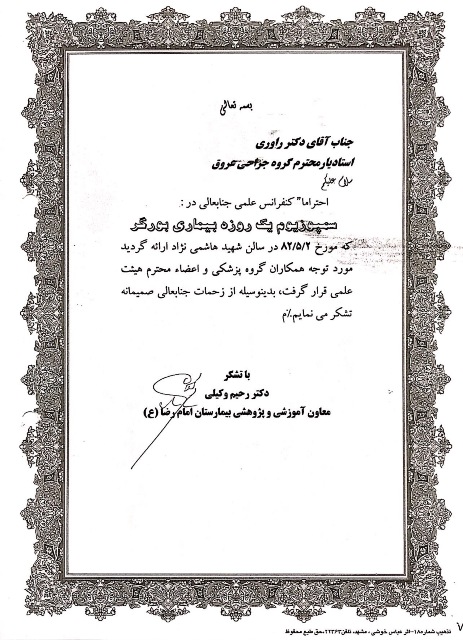 بسمه تعالی
جناب آقای دکتر راوری
استادیار محترم گروه جراحی عروق
سلام علیکم
احتراما" کنفرانس علمی جنابعالی در :
سمپوزیوم یک روزه بیماری بورگر
که مورخ ۸۲/۵/۲ در سالن شهید هاشمی نژاد ارائه گردید
مورد توجه همکاران گروه پزشکی و اعضاء محترم هیئت
علمی قرار گرفت، بدینوسیله از زحمات جنابعالی صمیمانه
تشکر می نمایم./م
با تشکر
دکتر رحیم وکیلی
معاون آموزشی و پژوهشی بیمارستان امام رضا (ع)
تذهیب شماره۱۸-اثر عباس خوشی ، مشهد، تلفن۲۲۳۶۳-حق طبع محفوظ
۷